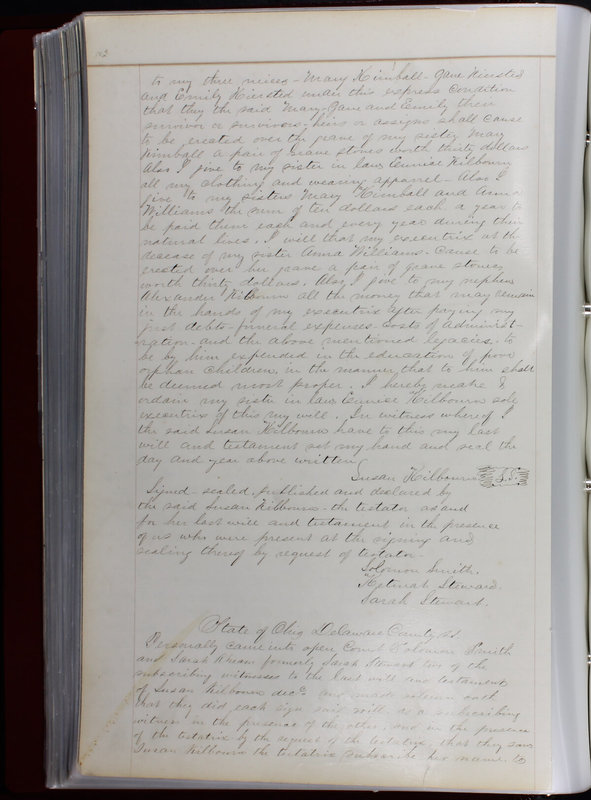 to my three neices - Mary Kimball - Jane Kinsted
and Emily Kinsted under this express condition
that they the said Mary, Jane and Emily their
survivor or survivors, heirs or assigns shall cause
to be erected over the grave of my sister Mary
Kimball a pair of Grave stones worth thirty dollars
Also I give to my sister in law Eunice Kilbourn
all my clothing and wearing apparrel - Also I
give to my sisters Mary Kimball and Anna
Williams the sum of ten dollars each a year to
be paid them each and every year during their
natural lives. I will that my executrix at the
decease of my sister Anna Williams. Cause to be
erected over her grave a pair of grave stones
worth thirty dollars. Also, I give to my nephew
Alexander Kilbourn all the money that may remain
in the hands of my executrix after paying my
just debts - funeral expenses - costs of Administ-
ration - and the above mentioned legacies, to
be by him expended in the education of poor
orphan children, in the manner that to him shall
be deemed most proper. I hereby make &
ordain my sister in law Eunice Kilbourn sole
executrix of this my will. In witness whereof I
the said Susan Kilbourn have to this my last
will and testament set my hand and seal the
day and year above written
Susan Kilbourn L.S.
Signed - sealed, published and declared by
the said Susan Kilbourn - the testator as and
for her last will and testament in the presence
of us who were present at the signing and
sealing thereof by request of testator -
Solomon Smith.
Steward.
Sarah Stewart.
State of Ohio, Delaware County, ss.
Personally came into open Court Solomon Smith
and Sarah formerly Sarah Stewart two of the
subscribing witnesses to the last will and testament
of Susan Kilbourn decd and made solemn oath
that they did each sign said will, as a subscribing
witness in the presence of the other, and in the presence
of the testatrix by the request of the testatrix, that they saw
Susan Kilbourn the testatrix subscribe her name to